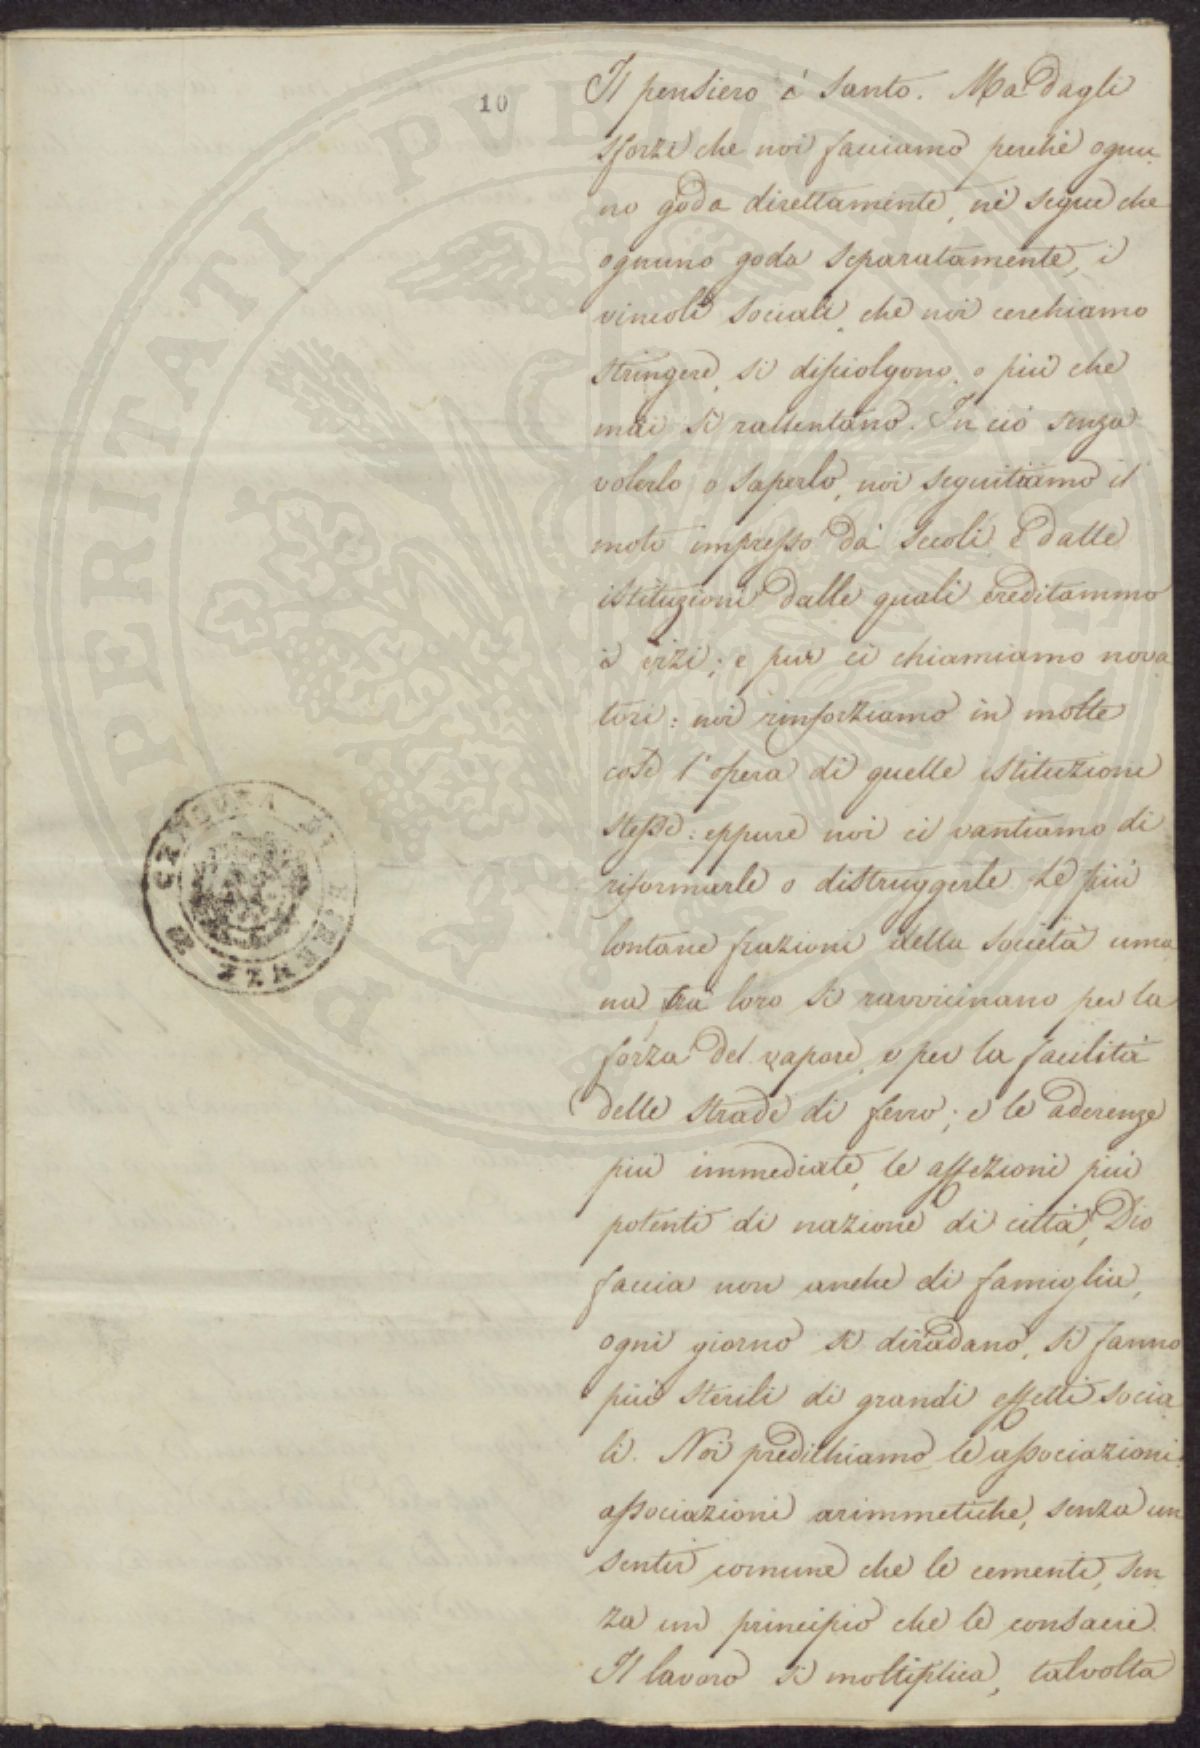 10
Il pensiero è santo. Ma dagli
sforzi che noi facciamo perchè ognu-
no goda direttamente, nè segue che
ognuno goda separatamente, i
vincoli sociali, che noi cerchiamo
stringere, si disciolgono, o più che
mai si rallentano. In ciò senza
volerlo o saperlo, noi seguitiamo il
moto impresso da' secoli e dalle
istituzioni dalle quali ereditammo
i vizi; e pur ci chiamiamo nova
tori: noi rinforziamo in molte
cose l'opera di quelle istituzioni
stesse: eppure noi ci vantiamo di
riformarle o distruggerle. Le più
lontane frazioni della società uma
na, fra loro si ravvicinano per la
forza del vapore, e per la facilità
delle strade di ferro; e le aderenze
più immediate, le affezioni più
potenti di nazione di città, Dio
faccia non anche di famiglia,
ogni giorno si diradano, si fanno
più sterili di grandi effetti socia
li. Noi predichiamo le associazioni:
associazioni arimmetiche, senza un
sentir comune che le cementi, sen-
za un principio che le consacri.
Il lavoro si moltiplica, talvolta
CENSURA DI FIRENZE
PERITATI PUBLICAE